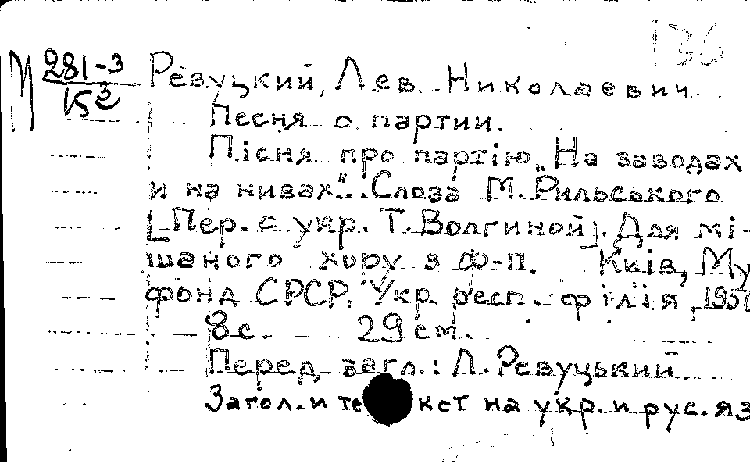 136
М 281-3
Ревуцкий, Лев Николаевич
Песня о партии.
Пісня про партію „На заводах
и на нивах". Слова М. Рильського
[Пер. с укр. Т. Волгиной]. Для мі-
шаного хору з ф-п. Київ, Му
фонд СРСР, Укр. респ. філія, 195
8 с. 29 см.
Перед загл.: Л. Ревуцький
Загол. и текст на укр. и рус. яз